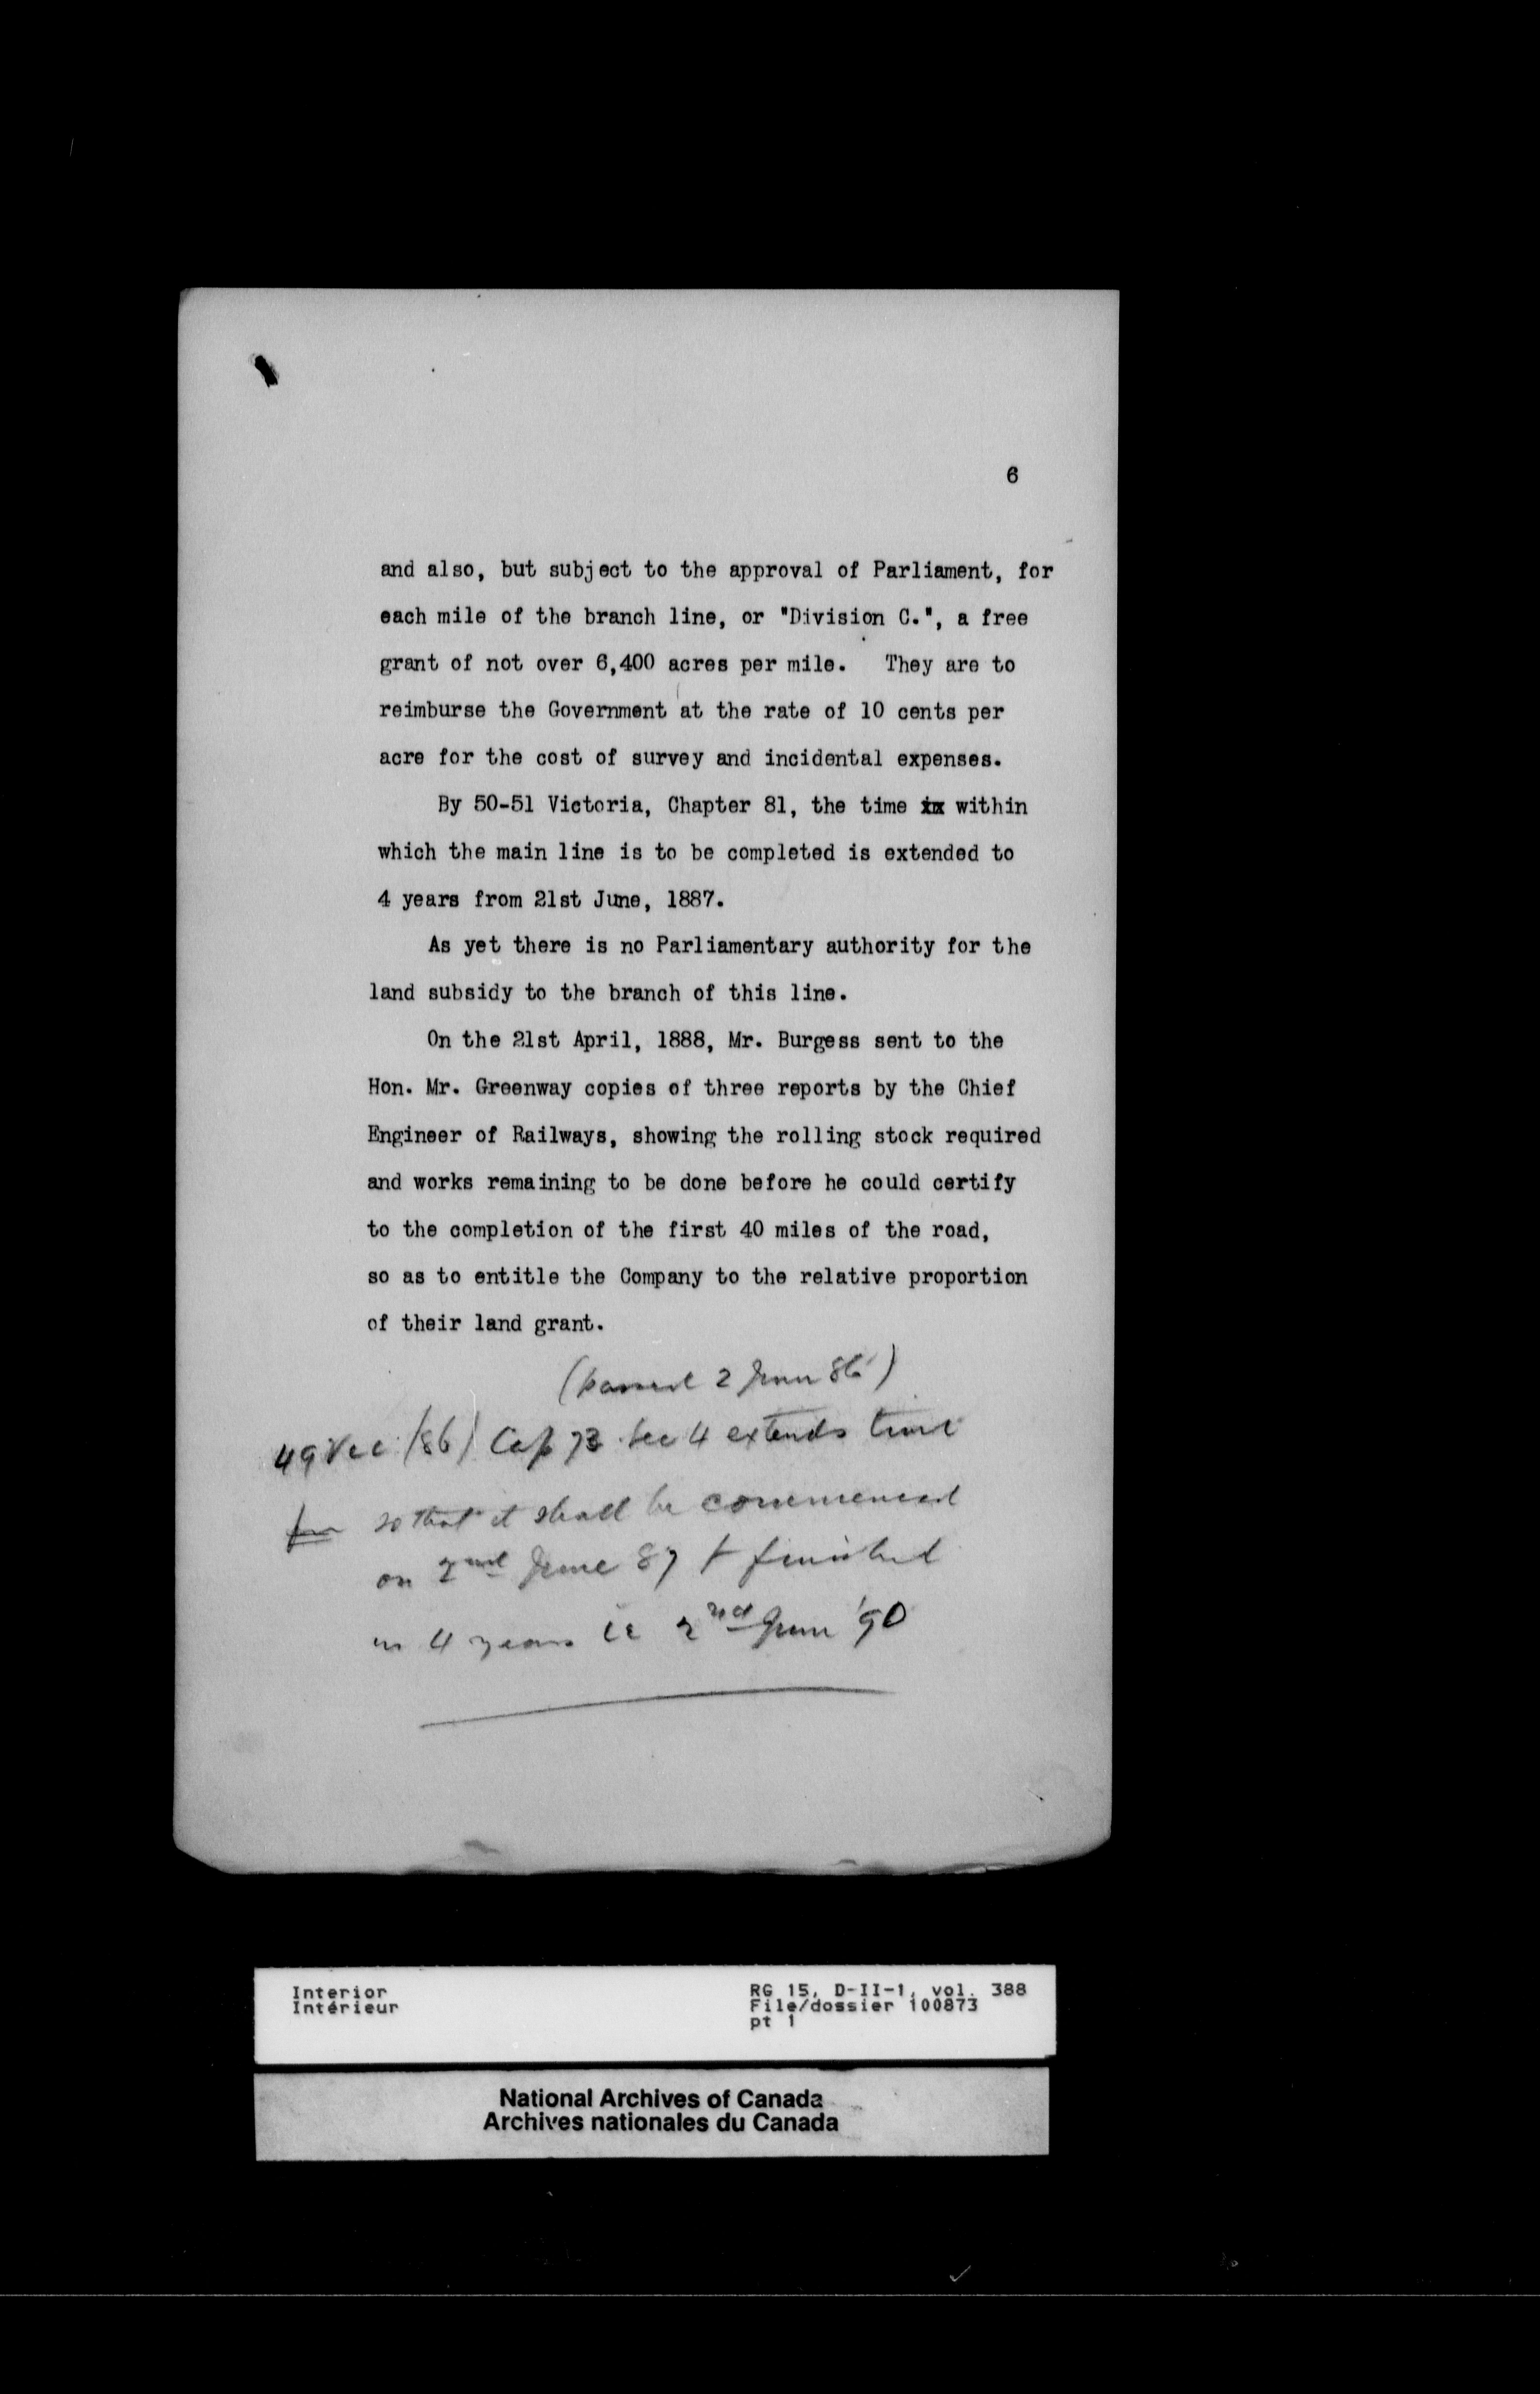 6
and also, but subject to the approval of Parliament, for
each mile of the branch line, or "Division C.", a free
grant of not over 6,400 acres per mile. They are to
reimburse the Government at the rate of 10 cents per
acre for the cost of survey and incidental expenses.
By 50-51 Victoria, Chapter 81, the time ix within
which the main line is to be completed is extended to
4 years from 21st June, 1887.
As yet there is no Parliamentary authority for the
land subsidy to the branch of this line.
On the 21st April, 1888, Mr. Burgess sent to the
Hon. Mr. Greenway copies of three reports by the Chief
Engineer of Railways, showing the rolling stock required
and works remaining to be done before he could certify
to the completion of the first 40 miles of the road,
so as to entitle the Company to the relative proportion
of their land grant.
(passed 2 June 86)
49 Vic (86) Cap 73 Sec 4 extends time
for so that it shall be commenced
on 2nd June 87 + finished
in 4 years ie 2nd June '90
Interior
Intérieur
RG 15, D-II-1, vol. 388
File/dossier 100873
pt 1
National Archives of Canada
Archives nationales du Canada